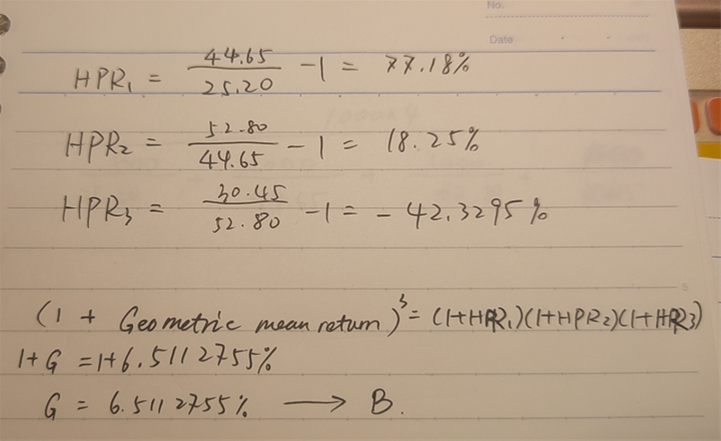 No.
Date
HPR₁ = 44.65 / 25.20 - 1 = 77.18%
HPR₂ = 52.80 / 44.65 - 1 = 18.25%
HPR₃ = 30.45 / 52.80 - 1 = - 42.3295%
(1 + Geometric mean return)³ = (1+HPR₁)(1+HPR₂)(1+HPR₃)
1+G = 1+6.5112755%
G = 6.5112755% → B.